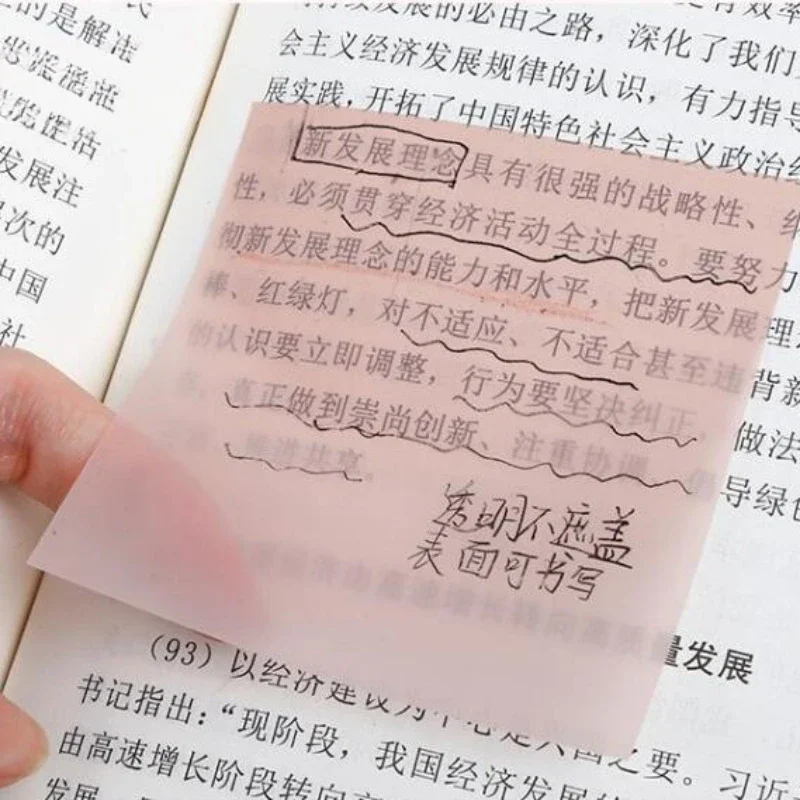 民
的是解决
发展注
层次的
中国
社
发展的必由之路，深化了我们
会主义经济发展规律的认识，有力指导
展实践，开拓了中国特色社会主义政治经
新发展理念具有很强的战略性、纲
性，必须贯穿经济活动全过程。要努力
彻新发展理念的能力和水平，把新发展理
棒、红绿灯，对不适应、不适合甚至违背新
的认识要立即调整，行为要坚决纠正，做法
真正做到崇尚创新、注重协调、倡导绿色
推进共享。
透明不遮盖
表面可书写
经济由高速增长转向高质量发展
（93）以经济建设为中心是兴国之要。习近
书记指出：“现阶段，我国经济发展的
由高速增长阶段转向高
发展